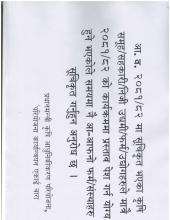 आ. व. २०८१/८२ मा सूचिकृत भएका कृषि
समूह/सहकारी/निजी उद्यमी/फर्म/उद्योगहरुले मात्रै
२०८१/८२ को कार्यक्रममा प्रस्ताव पेश गर्न योग्य
हुने भएकोले समयमा नै आ-आफ्नो फर्म/संस्थाहरु
सूचिकृत गर्नुहुन अनुरोध छ ।
प्रधानमन्त्री कृषि आधुनिकीकरण परियोजना,
परियोजना कार्यान्वयन एकाई बारा